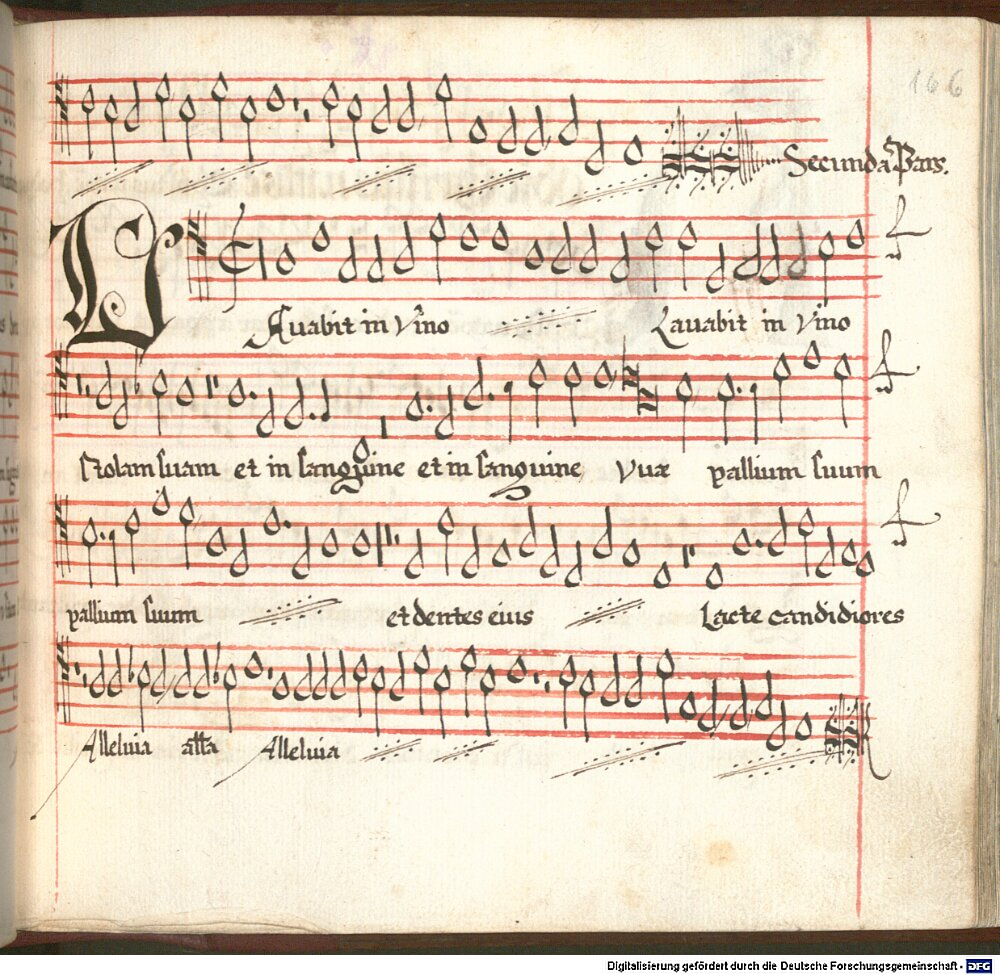 166
Secunda Pars.
LAuabit in Vino Lauabit in Vino
Stolam suam et in sanguine et in sanguine Vuæ pallium suum
pallium suum et dentes eius Lacte candidiores
Alleluia alła Alleluia
Digitalisierung gefördert durch die Deutsche Forschungsgemeinschaft - DFG